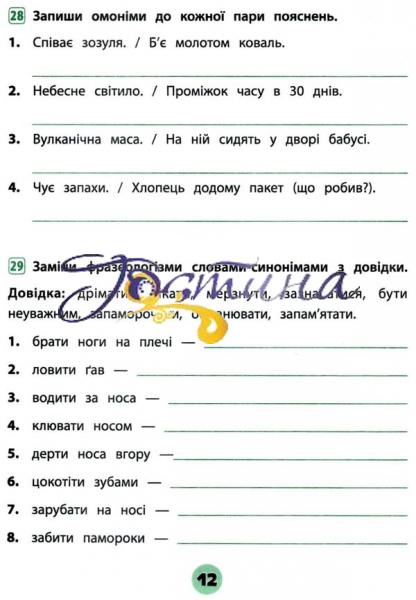 28 Запиши омоніми до кожної пари пояснень.
1. Співає зозуля. / Б’є молотом коваль.
2. Небесне світило. / Проміжок часу в 30 днів.
3. Вулканічна маса. / На ній сидять у дворі бабусі.
4. Чує запахи. / Хлопець додому пакет (що робив?).
Ростина
29 Заміни фразеологізми словами-синонімами з довідки.
Довідка: дрімати, мерзнути, зазнаватися, бути
неуважним, запаморочити, обманювати, запам’ятати.
1. брати ноги на плечі —
2. ловити ґав —
3. водити за носа —
4. клювати носом —
5. дерти носа вгору —
6. цокотіти зубами —
7. зарубати на носі —
8. забити памороки —
12